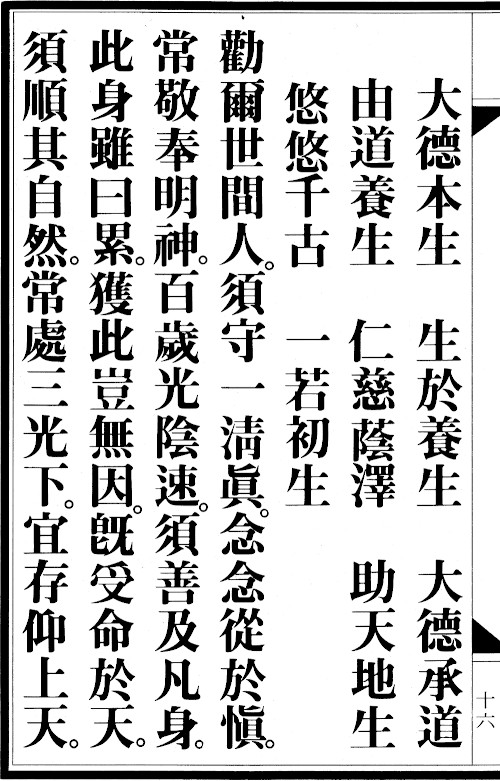 大德本生　生於養生　大德承道
由道養生　仁慈蔭澤　助天地生
悠悠千古　一若初生
勸爾世間人。須守一淸眞。念念從於愼。
常敬奉明神。百歲光陰速。須善及凡身。
此身雖曰累。獲此豈無因。旣受命於天。
須順其自然。常處三光下。宜存仰上天。
十六